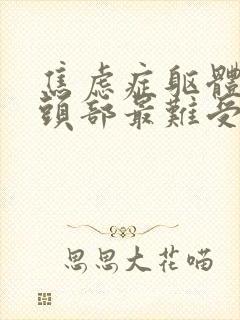 焦虑症躯體
頭部最難受
思思大花喵